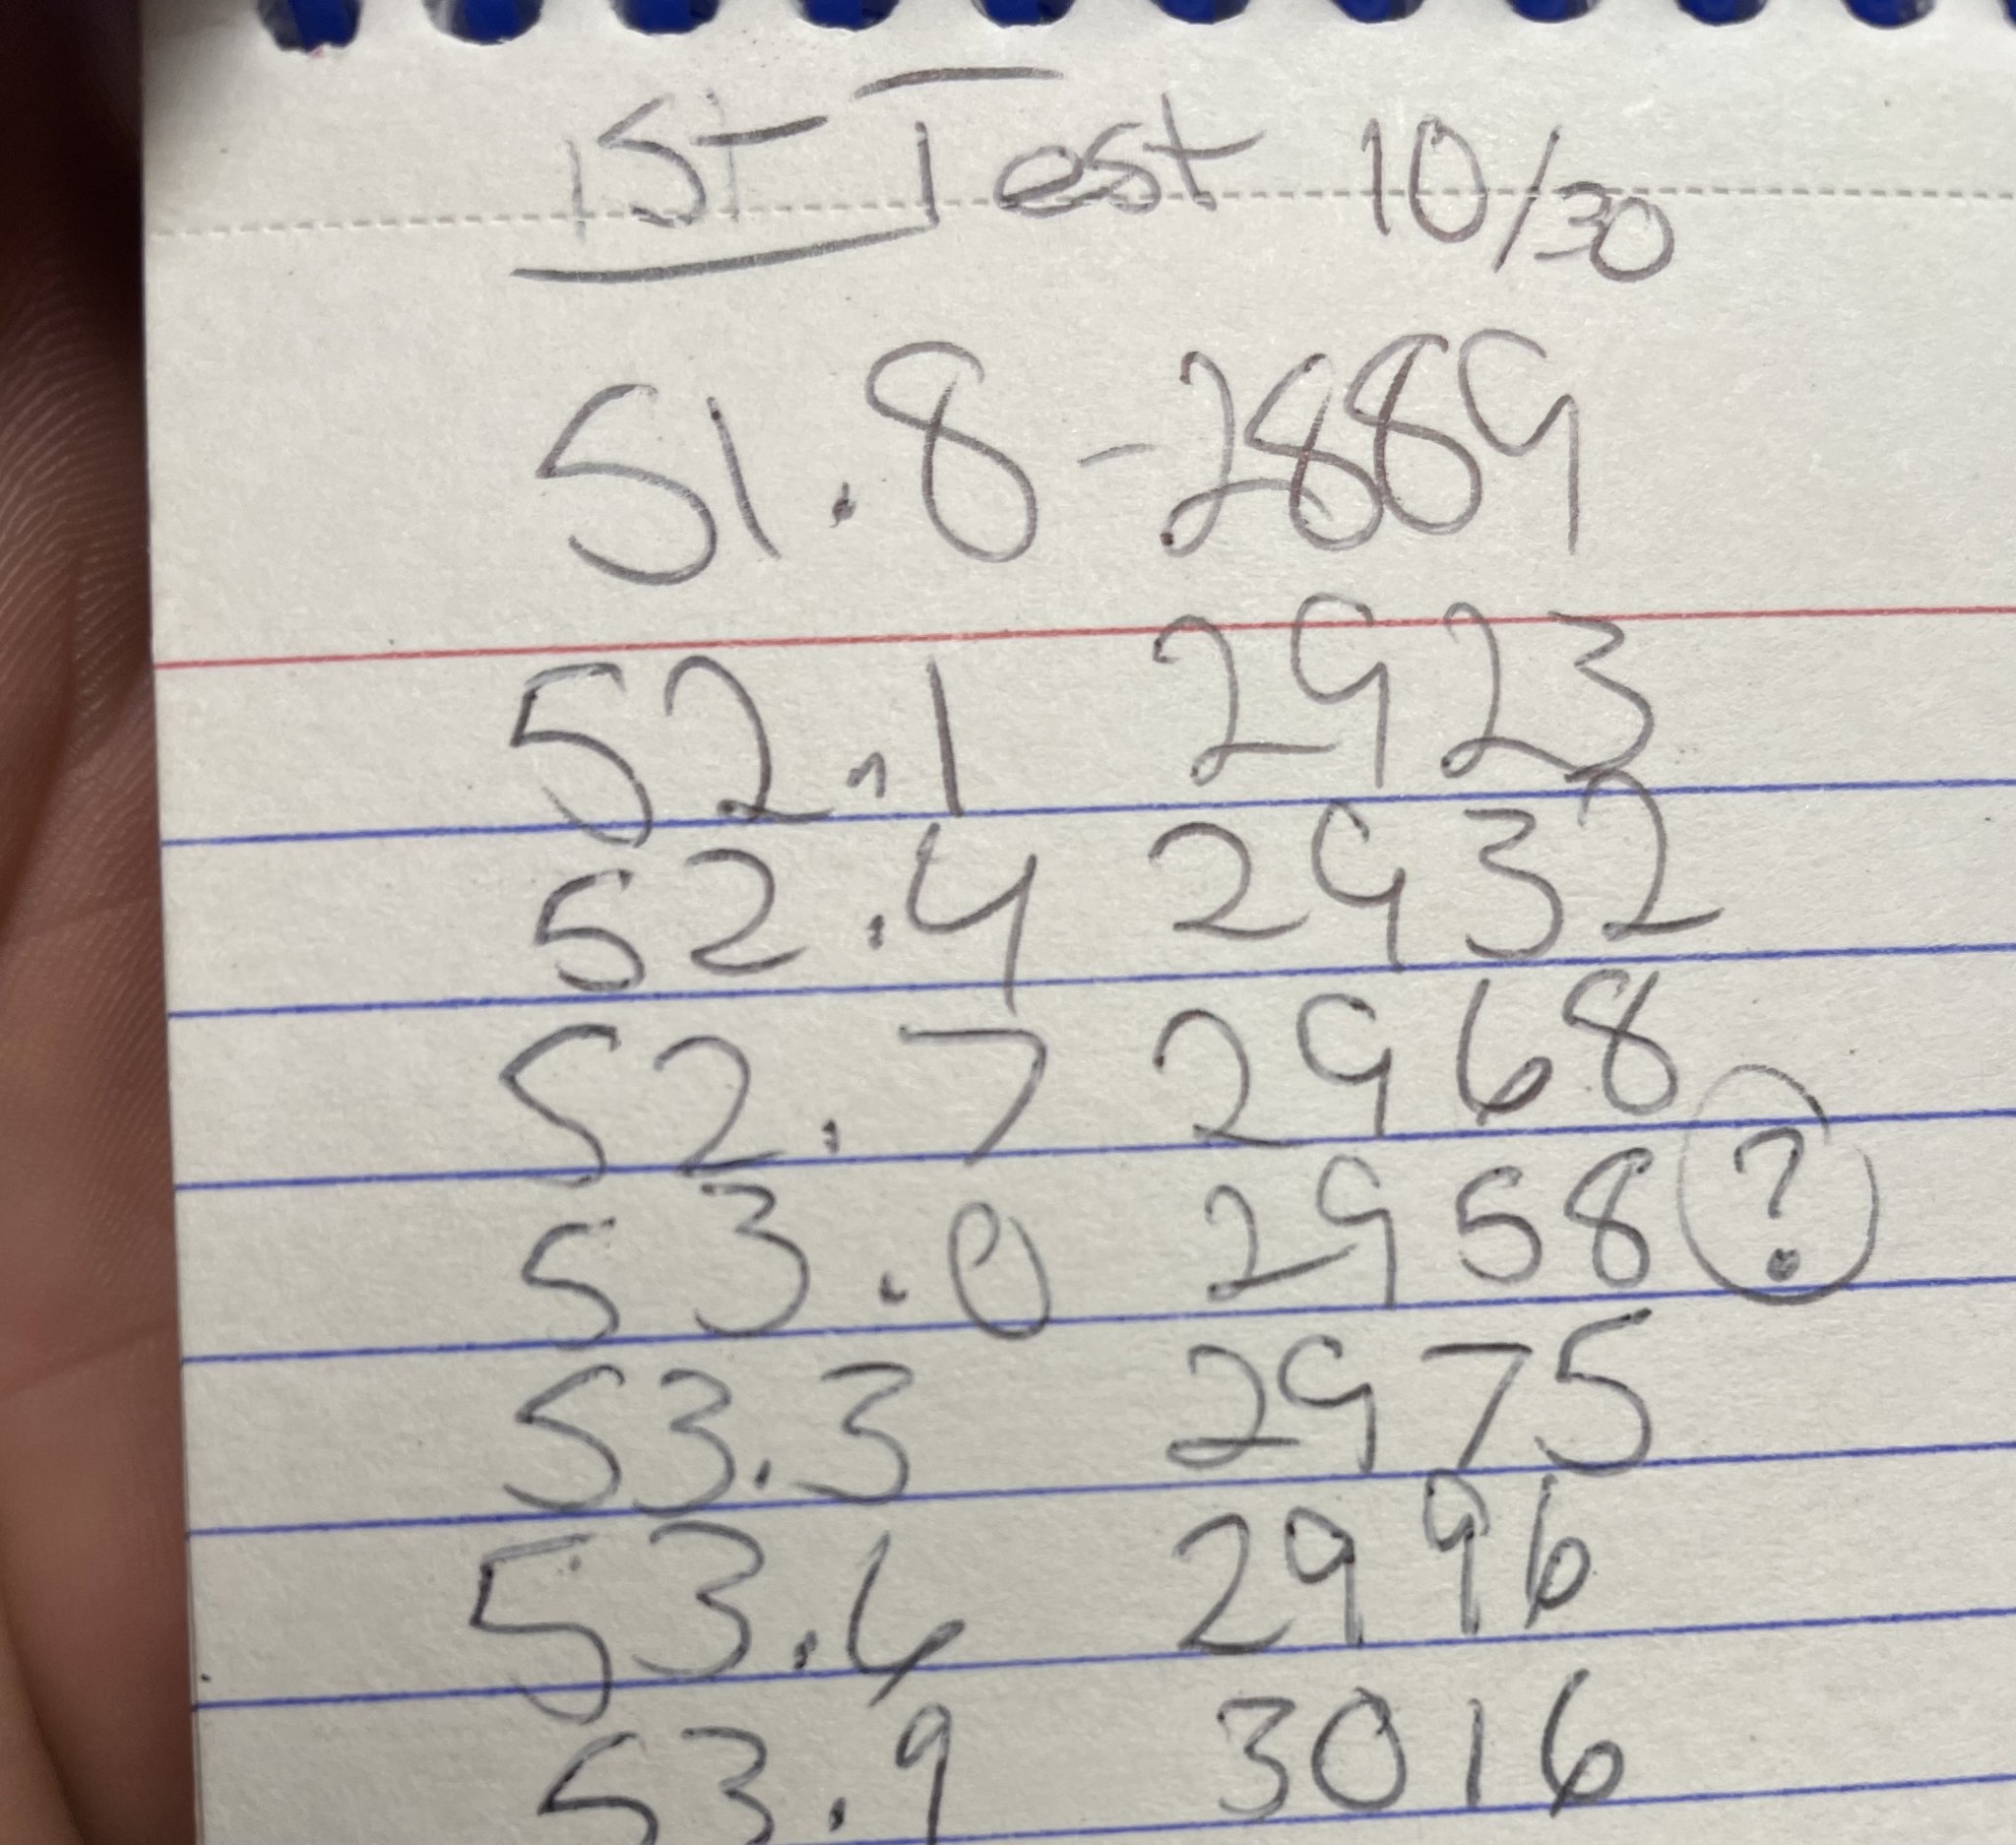 1ST Test 10/30
51.8 - 2889
52.1 2923
52.4 2932
52.7 2968
53.0 2958 ?
53.3 2975
53.6 2996
53.9 3016